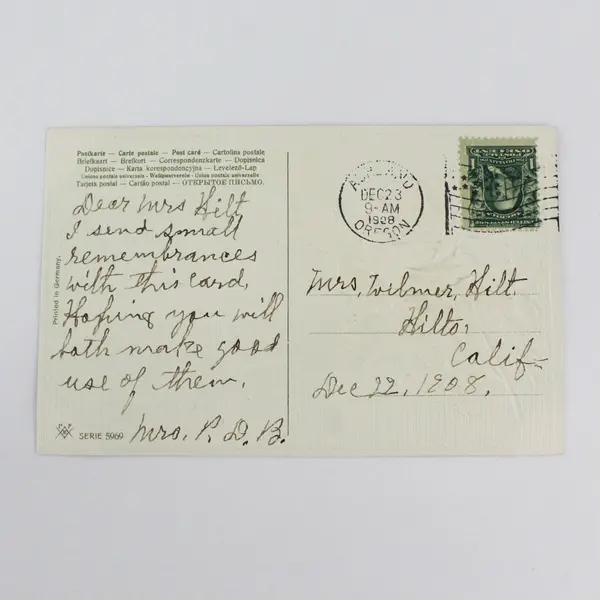 Postkarte — Carte postale — Post card — Cartolina postale
Briefkaart — Brefkort — Correspondenzkarte — Dopisnica
Dopisnice — Karta korespondencyjna — Levelező-Lap
Unione postale universale - Weltpostverein - Union postale universelle
Tarjeta postal — Cartão postal — ОТКРЫТОЕ ПИСЬМО.
Dear Mrs Hilt
I send small
remembrances
with this card,
Hoping you will
both make good
use of them.
Mrs. P. D. B.
Printed in Germany.
SERIE 5969
ASHLAND
DEC 23
9-AM
1908
OREGON
Mrs, Wilmer, Hilt.
Hilts,
Calif
Dec 22, 1908,